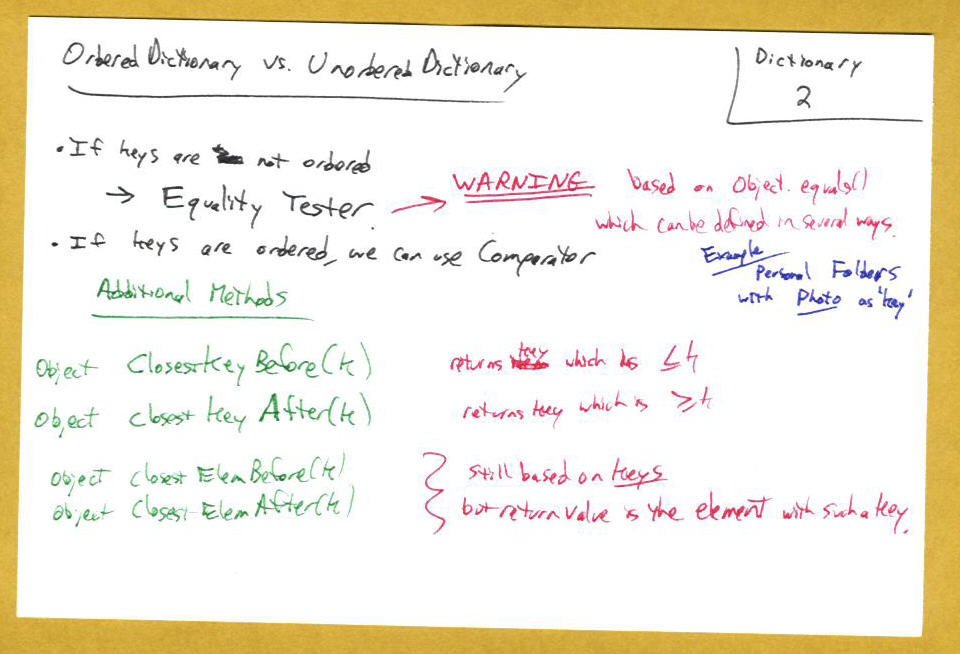 Ordered Dictionary vs. Unordered Dictionary
Dictionary
2
• If keys are not ordered
→ Equality Tester → WARNING based on Object.equals()
which can be defined in several ways.
• If keys are ordered, we can use Comparator
Example
Personal Folders
with Photo as 'key'
Additional Methods
Object ClosestKeyBefore(k) returns key which is ≤k
Object closestKeyAfter(k) returns key which is ≥k
Object closestElemBefore(k) } still based on keys
Object ClosestElemAfter(k) but return value is the element with such a key.